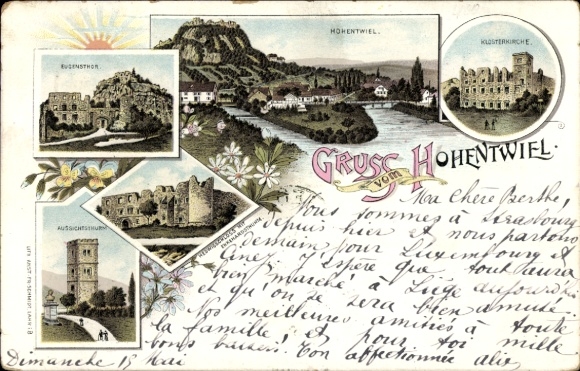 HOHENTWIEL.
KLOSTERKIRCHE.
EUGENSTHOR.
GRUSS vom HOHENTWIEL.
AUSSICHTSTHURM
Ma Chère Berthe,
Nous sommes à Strasbourg
depuis hier et nous partons
demain pour Luxembourg et
J'espère que tout aura
bien marché à Liège aujourd'hui
et qu'on se sera bien amusé.
Nos meilleures amitiés à toute
la famille et pour toi mille
bons baisers! Ton affectionnée
Dimanche 15 Mai